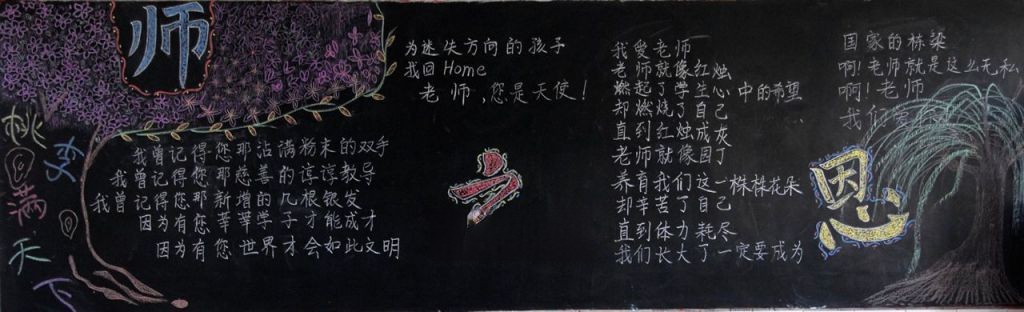 师之恩
桃李满天下
我曾记得您那沾满粉末的双手
我曾记得您那慈善的谆谆教导
我曾记得您那新增的几根银发
因为有您莘莘学子才能成才
因为有您世界才会如此文明
为迷失方向的孩子
我回Home
老师,您是天使!
我爱老师
老师就像红烛
燃起了学生心中的希望
却燃烧了自己
直到红烛成灰
老师就像园丁
养育我们这一株株花朵
却辛苦了自己
直到体力耗尽
我们长大了一定要成为
国家的栋梁
啊!老师就是这么无私
啊!老师
我们